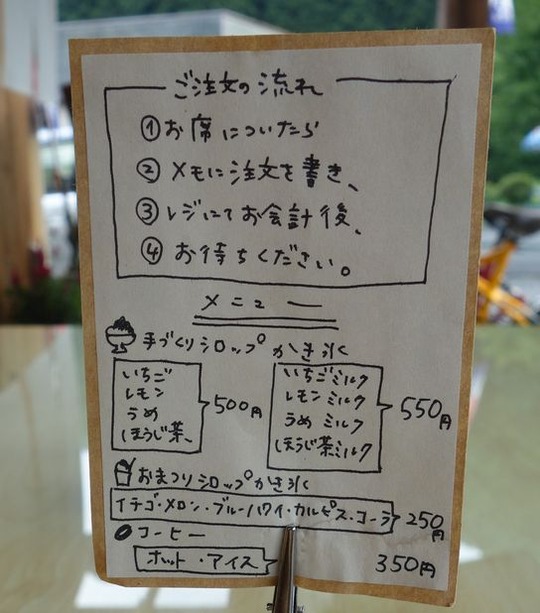 ご注文の流れ
①お席についたら
②メモに注文を書き、
③レジにてお会計後、
④お待ちください。
メニュー
手づくりシロップ かき氷
いちご
レモン
うめ
ほうじ茶、
500円
いちごミルク
レモンミルク
うめミルク
ほうじ茶ミルク
550円
おまつりシロップかき氷
イチゴ・メロン・ブルーハワイ・カルピス・コーラ 250円
コーヒー
ホット・アイス 350円